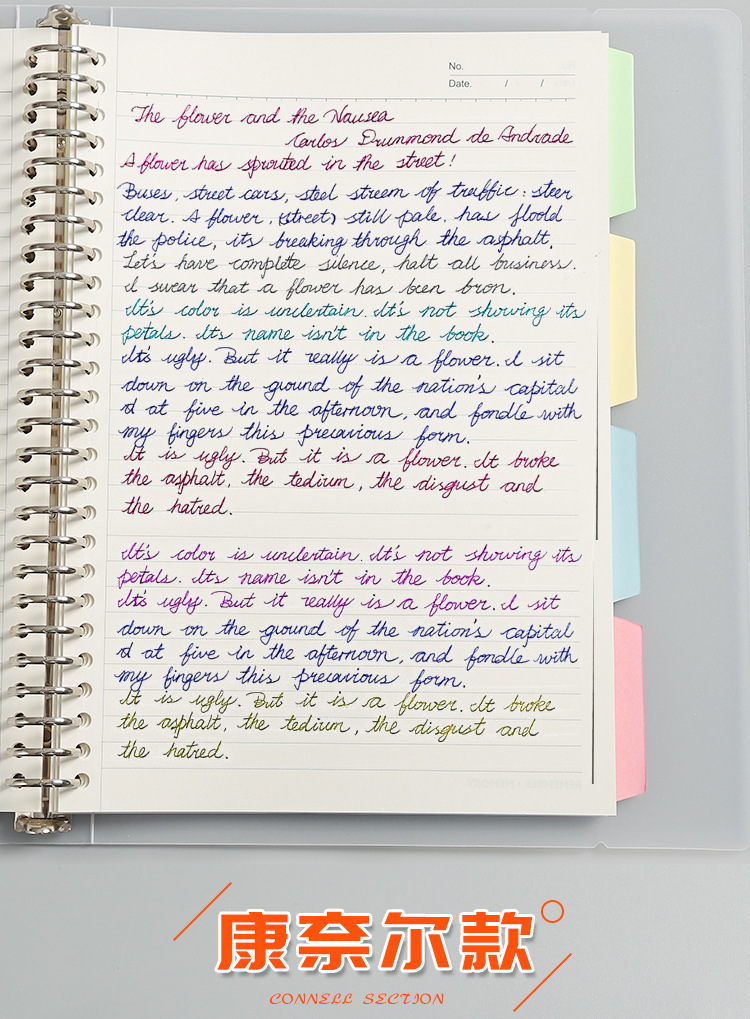 No.
Date. / /
The flower and the Nausea
Carlos Drummond de Andrade
A flower has sprouted in the street!
Buses, street cars, steel streem of traffic: steer
clear. A flower, (street) still pale, has floold
the police, it's breaking through the asphalt.
Let's have complete silence, halt all business.
I swear that a flower has been bron.
It's color is undertain. It's not showing its
petals. Its name isn't in the book.
It's ugly. But it really is a flower. I sit
down on the ground of the nation's capital
d at five in the afternoon, and fondle with
my fingers this precavious form.
It is ugly. But it is a flower. It broke
the asphalt, the tedium, the disgust and
the hatred.
It's color is undertain. It's not showing its
petals. Its name isn't in the book.
It's ugly. But it really is a flower. I sit
down on the ground of the nation's capital
d at five in the afternoon, and fondle with
my fingers this precavious form.
It is ugly. But it is a flower. It broke
the asphalt, the tedium, the disgust and
the hatred.
康奈尔款
CONNELL SECTION